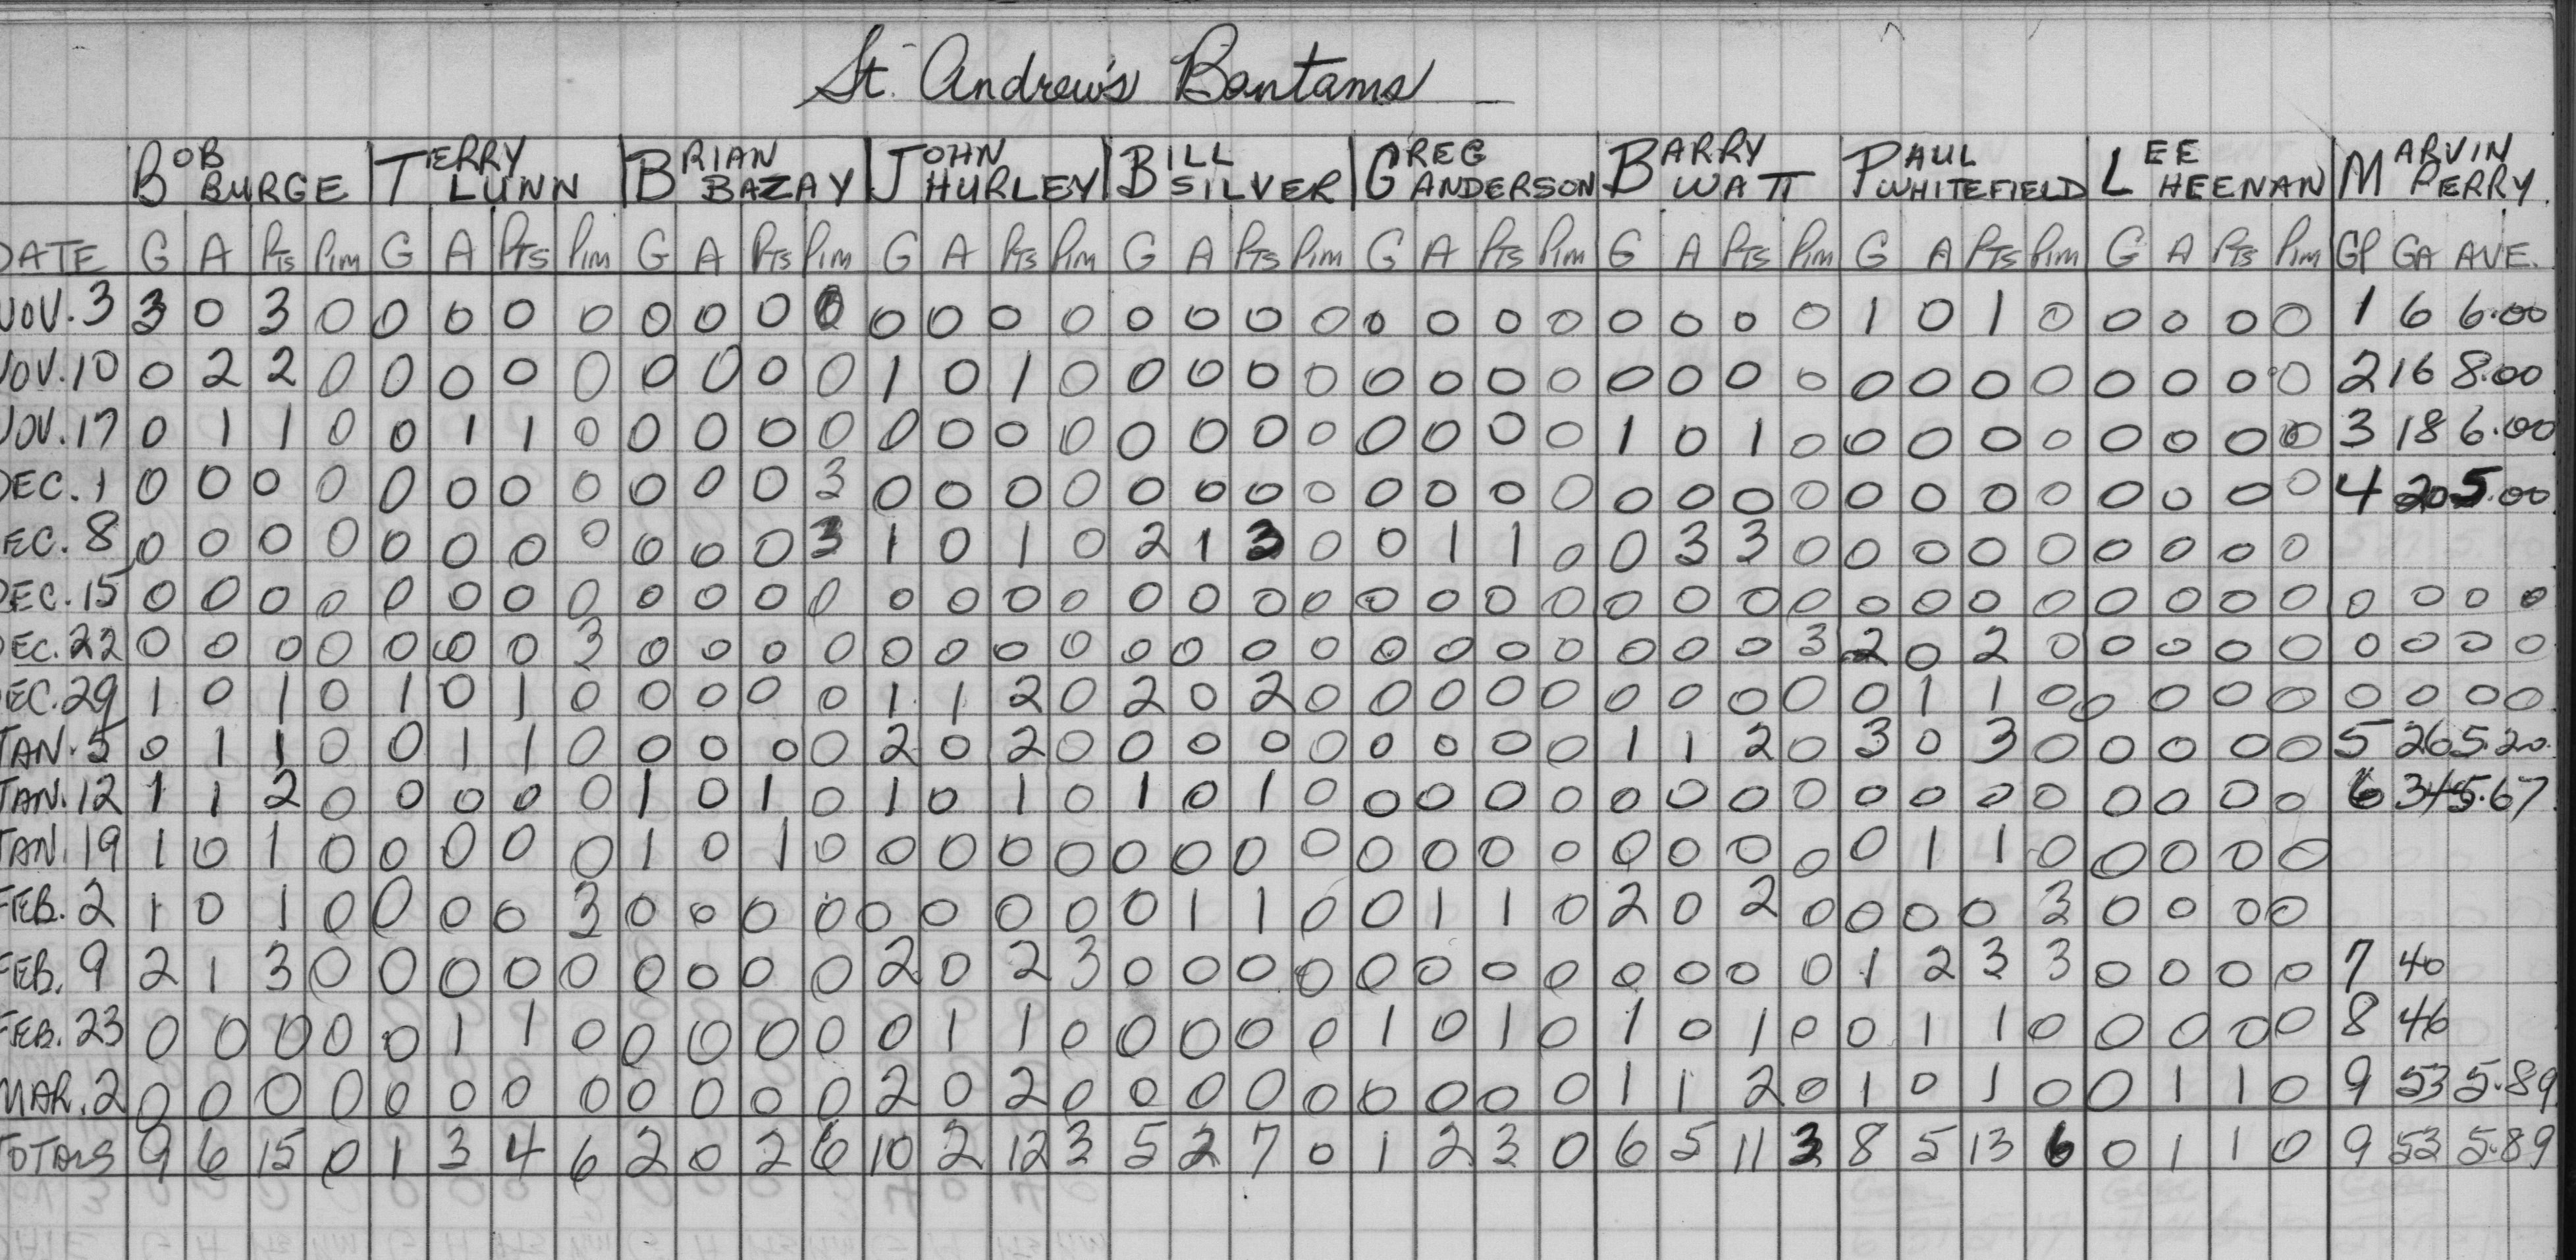 St. Andrew's Bantams
BOB BURGE TERRY LUNN BRIAN BAZAY JOHN HURLEY BILL SILVER GREG ANDERSON BARRY WATT PAUL WHITEFIELD LEE HEENAN MARVIN PERRY
DATE G A Pts Pim G A PTS Pim G A Pts Pim G A Pts Pim G A Pts Pim G A Pts Pim G A Pts Pim G A Pts Pim G A Pts Pim GP GA AVE.
NOV. 3 3 0 3 0 0 0 0 0 0 0 0 0 0 0 0 0 0 0 0 0 0 0 0 0 0 0 0 0 1 0 1 0 0 0 0 0 1 6 6.00
NOV. 10 0 2 2 0 0 0 0 0 0 0 0 0 1 0 1 0 0 0 0 0 0 0 0 0 0 0 0 0 0 0 0 0 0 0 0 0 2 16 8.00
NOV. 17 0 1 1 0 0 1 1 0 0 0 0 0 0 0 0 0 0 0 0 0 0 0 0 0 1 0 1 0 0 0 0 0 0 0 0 0 3 18 6.00
DEC. 1 0 0 0 0 0 0 0 0 0 0 0 3 0 0 0 0 0 0 0 0 0 0 0 0 0 0 0 0 0 0 0 0 0 0 0 0 4 20 5.00
DEC. 8 0 0 0 0 0 0 0 0 0 0 0 3 1 0 1 0 2 1 3 0 0 1 1 0 0 3 3 0 0 0 0 0 0 0 0 0
DEC. 15 0 0 0 0 0 0 0 0 0 0 0 0 0 0 0 0 0 0 0 0 0 0 0 0 0 0 0 0 0 0 0 0 0 0 0 0 0 0 0 0
DEC. 22 0 0 0 0 0 0 0 3 0 0 0 0 0 0 0 0 0 0 0 0 0 0 0 0 0 0 0 3 2 0 2 0 0 0 0 0 0 0 0 0
DEC. 29 1 0 1 0 1 0 1 0 0 0 0 0 1 1 2 0 2 0 2 0 0 0 0 0 0 0 0 0 0 1 1 0 0 0 0 0 0 0 0 0
JAN. 5 0 1 1 0 0 1 1 0 0 0 0 0 2 0 2 0 0 0 0 0 0 0 0 0 1 1 2 0 3 0 3 0 0 0 0 0 5 26 5.20
JAN. 12 1 1 2 0 0 0 0 0 1 0 1 0 1 0 1 0 1 0 1 0 0 0 0 0 0 0 0 0 0 0 0 0 0 0 0 0 6 34 5.67
JAN. 19 1 0 1 0 0 0 0 0 1 0 1 0 0 0 0 0 0 0 0 0 0 0 0 0 0 0 0 0 0 1 1 0 0 0 0 0
FEB. 2 1 0 1 0 0 0 0 3 0 0 0 0 0 0 0 0 0 1 1 0 0 1 1 0 2 0 2 0 0 0 0 3 0 0 0 0
FEB. 9 2 1 3 0 0 0 0 0 0 0 0 0 2 0 2 3 0 0 0 0 0 0 0 0 0 0 0 0 1 2 3 3 0 0 0 0 7 40
FEB. 23 0 0 0 0 0 1 1 0 0 0 0 0 0 1 1 0 0 0 0 0 1 0 1 0 1 0 1 0 0 1 1 0 0 0 0 0 8 46
MAR. 2 0 0 0 0 0 0 0 0 0 0 0 0 2 0 2 0 0 0 0 0 0 0 0 0 1 1 2 0 1 0 1 0 0 1 1 0 9 53 5.89
TOTALS 9 6 15 0 1 3 4 6 2 0 2 6 10 2 12 3 5 2 7 0 1 2 3 0 6 5 11 3 8 5 13 6 0 1 1 0 9 53 5.89